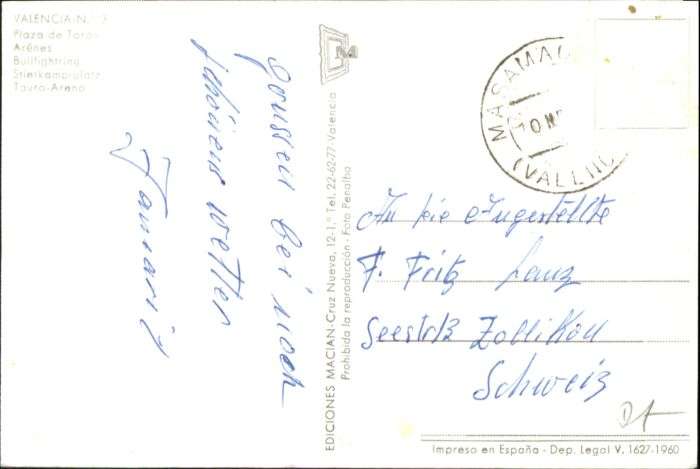 VALENCIA-N.
Plaza de Toros
Arènes
Bullfightring
Stierkampfplatz
Tauro-Arena
bei noch
schönem wetter
EDICIONES MACIAN-Cruz Nueva, 12-1.° Tel. 22-62-77-Valencia
Prohibida la reproducción - Foto Penalba
MASAMAG
10 N
(VALEN
An die Angestellte
F. Fritz Lanz
Seestr Zollikon
Schweiz
Impreso en España - Dep. Legal V. 1627-1960